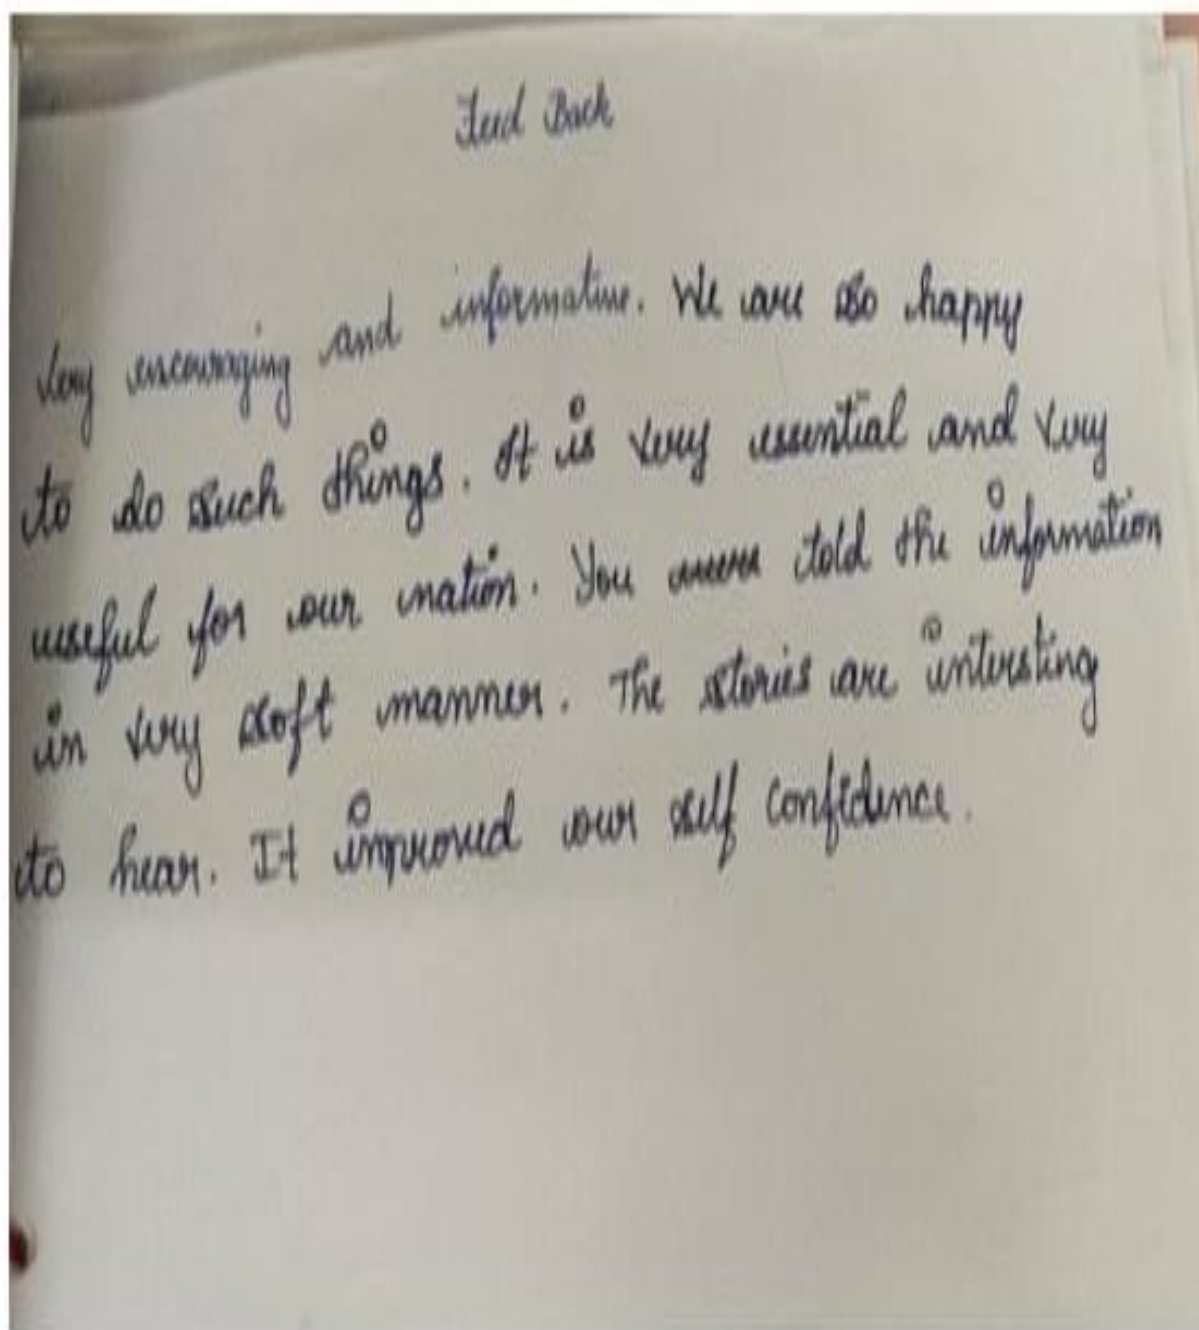 Feed Back
Very encouraging and informative. We are so happy
to do such things. It is very essential and very
useful for our nation. You told the information
in very soft manner. The stories are intersting
to hear. It improved our self confidence.